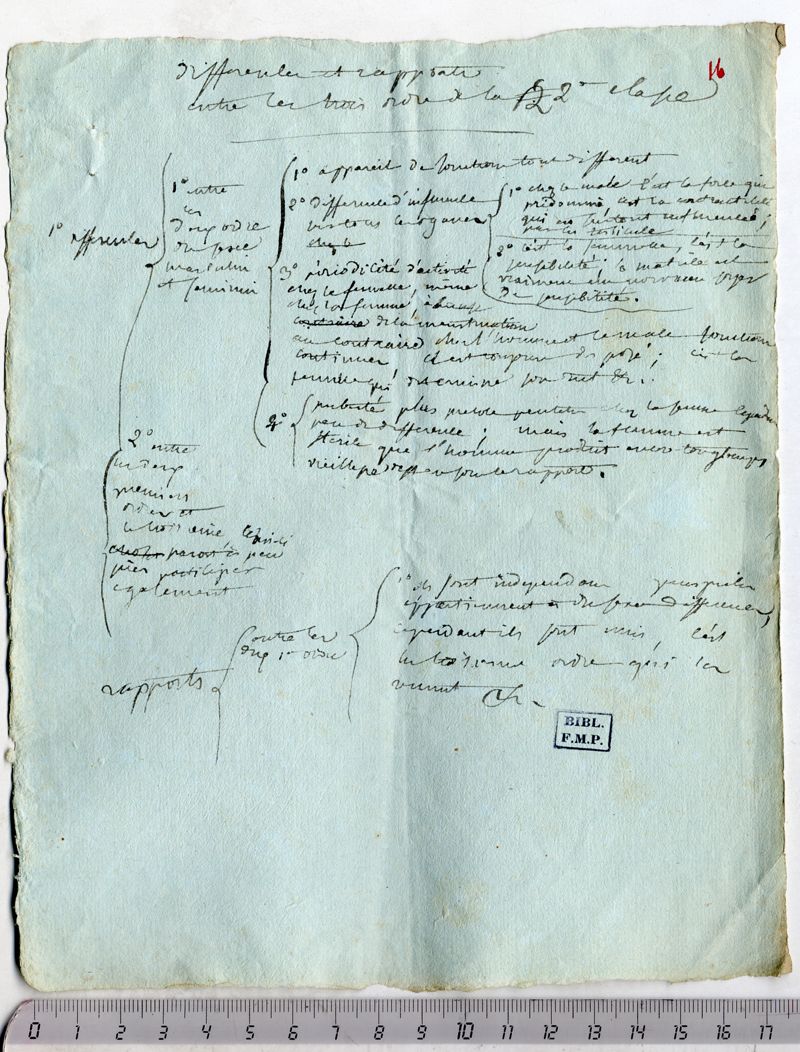 16
differences et rapports
entre les trois ordre de la 2e classe
1° differences
1° entre
les
deux ordre
du sexe
masculin
et feminin
1° appareil de fonction tout different
2° difference d'influence
vis tous les organes
chez le
1° chez le male c'est la force qui
predomine, c'est la contractilité
qui est surtout influencée,
par les testicule
2° c'est la femmelle, c'est la
sensibilité; la matrice est
vraiment un nouveau foyer
de sensibilité.
3° périodicité d'activité
chez la femelle, même
chez la femme, à cause
contraire de la menstruation
au contraire chez l'homme et le male fonction
continuer
femelle qui determine son rut &c.
4° puberté plus precoce peut être chez la femme cependant
peu de difference; mais la femme est
sterile que l'homme produit encore longtemps
vieillesse sous le rapport.
2° entre
les deux
premiers
ordres et
le troisieme, celui-ci
paroit à peu
près participer
egalement
rapports
entre les
deux 1er ordre
1° ils sont independans puisqu'ils
appartiennent a du sexe differens,
cependant ils sont unis, c'est
le troisieme ordre qui les
reunit &c.
BIBL.
F.M.P.
0 1 2 3 4 5 6 7 8 9 10 11 12 13 14 15 16 17